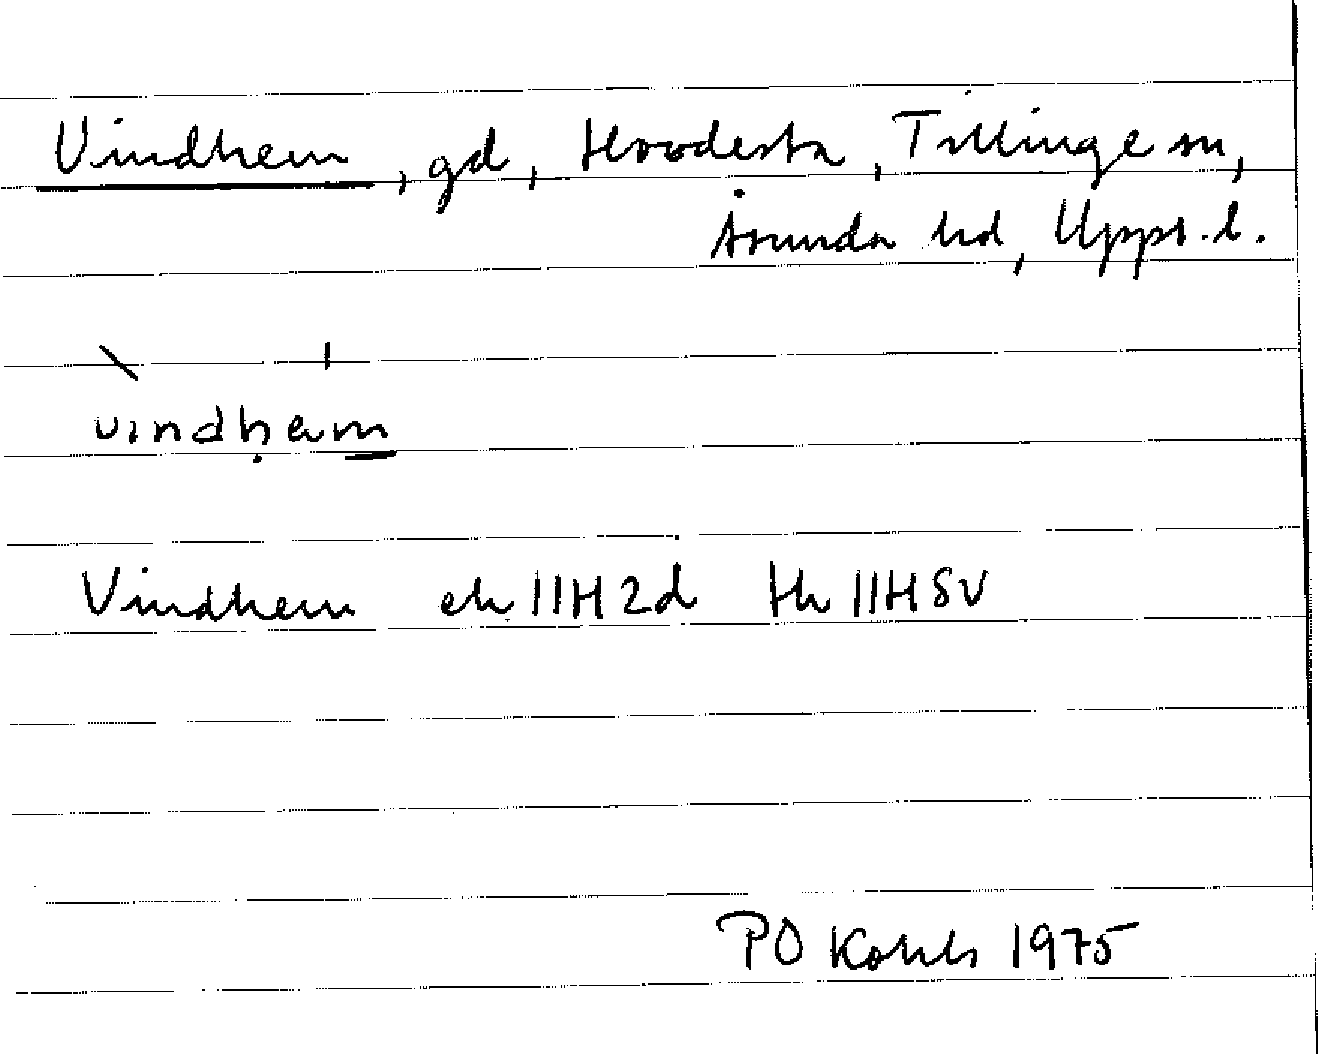 Vindhem, gd, Hovdesta, Tillinge sn,
Åsunda hd, Upps. l.
vindḥem
Vindhem ek 11H2d tk 11HSV
PO Kohls 1975